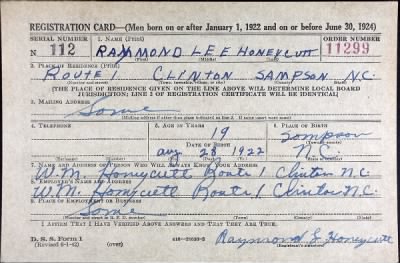 REGISTRATION CARD—(Men born on or after January 1, 1922 and on or before June 30, 1924)
SERIAL NUMBER 1. NAME (Print) ORDER NUMBER
N 112 RAYMOND LEE HONEYCUTT 11299
2. PLACE OF RESIDENCE (Print)
ROUTE 1 CLINTON SAMPSON N.C.
[THE PLACE OF RESIDENCE GIVEN ON THE LINE ABOVE WILL DETERMINE LOCAL BOARD
JURISDICTION; LINE 2 OF REGISTRATION CERTIFICATE WILL BE IDENTICAL]
3. MAILING ADDRESS
Same
[Mailing address if other than place indicated on line 2. If same insert word same]
4. TELEPHONE 5. AGE IN YEARS 6. PLACE OF BIRTH
19 Sampson
DATE OF BIRTH
Aug 28 1922 N.C.
7. NAME AND ADDRESS OF PERSON WHO WILL ALWAYS KNOW YOUR ADDRESS
W.M. Honeycutt Route 1 Clinton N.C.
8. EMPLOYER'S NAME AND ADDRESS
W.M. Honeycutt Route 1 Clinton N.C.
9. PLACE OF EMPLOYMENT OR BUSINESS
Same
I AFFIRM THAT I HAVE VERIFIED ABOVE ANSWERS AND THAT THEY ARE TRUE.
D. S. S. Form 1
(Revised 6-1-42) (over) Raymond L Honeycutt